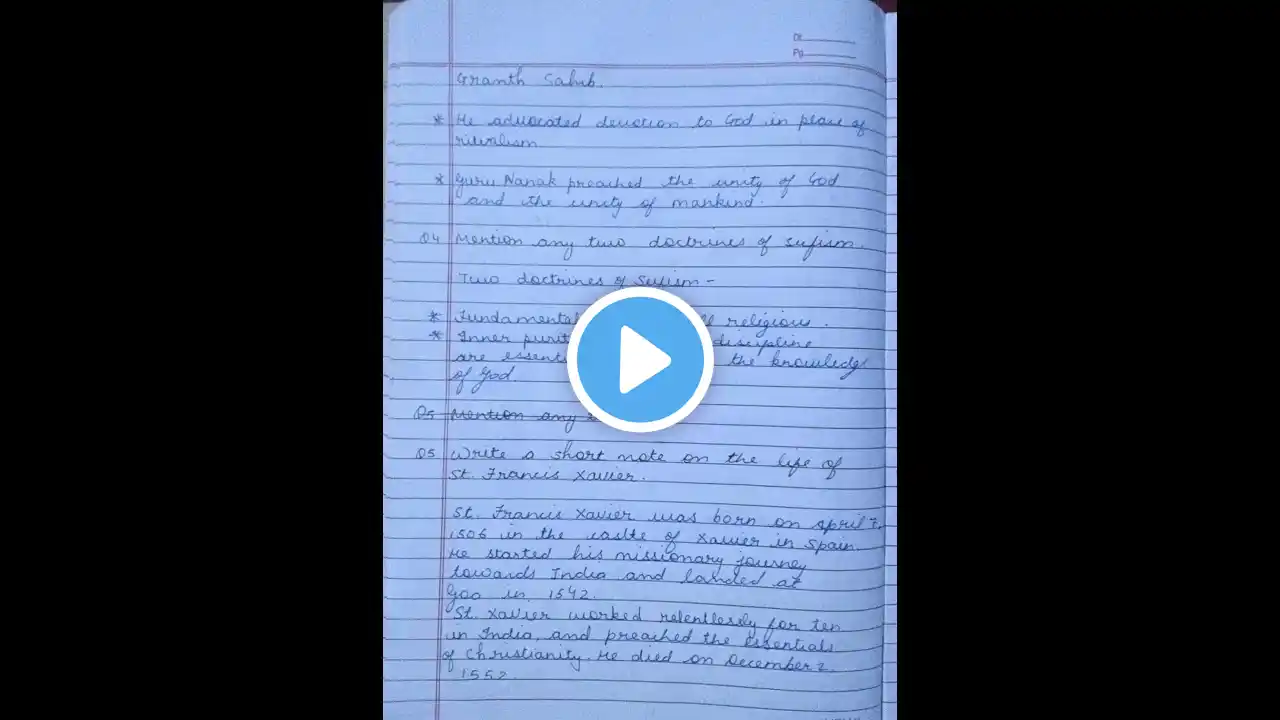 Dt
Pg
Granth Sahib.
* He advocated devotion to God in place of
ritualism
* Guru Nanak preached the unity of God
and the unity of mankind.
Q4 Mention any two doctrines of sufism.
Two doctrines of Sufism -
* Fundamental religious.
* Inner discipline
are the knowledge
of God.
Q5 Mention any
Q5 Write a short note on the life of
St. Francis Xavier.
St. Francis Xavier was born on April 7,
1506 in the castle of Xavier in Spain.
He started his missionary journey
towards India and landed at
Goa in 1542.
St. Xavier worked relentlessly for ten
in India, and preached the essentials
of Christianity. He died on December 2,
1552.